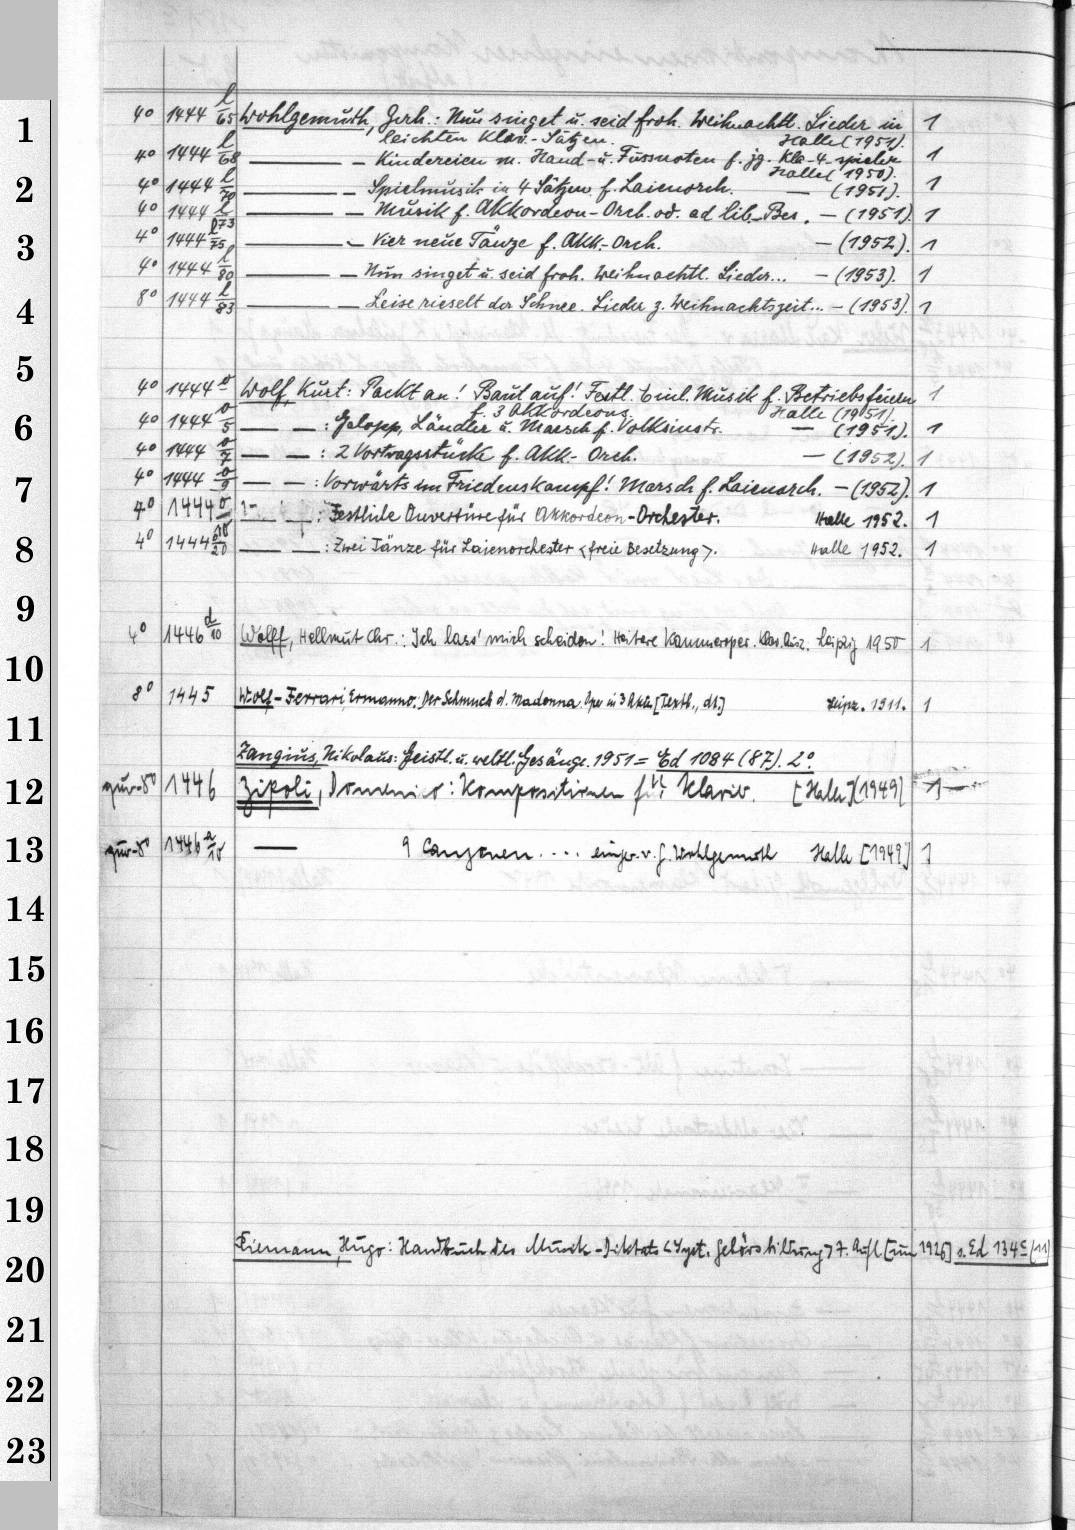 l
4° 1444 /65 Wohlgemuth, Gerh.: Nun singet u. seid froh. Weihnachtl. Lieder in 1
1
leichten Klav.-Sätzen. Halle (1951).
4° 1444 l/68 ——— — Kindereien m. Hand- u. Fussnoten f. jg. Kla-4-spieler 1
Halle (1950).
2
4° 1444 l/70 ——— — Spielmusik in 4 Sätzen f. Laienorch. — (1951). 1
4° 1444 l/73 ——— — Musik f. Akkordeon-Orch. od. ad lib.-Bes. — (1951). 1
3
4° 1444 l/75 ——— — Vier neue Tänze f. Akk.-Orch. — (1952). 1
4° 1444 l/80 ——— — Nun singet u. seid froh. Weihnachtl. Lieder... — (1953). 1
4
8° 1444 l/83 ——— — Leise rieselt der Schnee. Lieder z. Weihnachtszeit... — (1953). 1
5
4° 1444 o Wolf, Kurt: Packt an! Baut auf! Festl. Einl. Musik f. Betriebsfeiern 1
f. 3 Akkordeons. Halle (1951).
6
4° 1444 o/5 — — : Galopp, Ländler u. Marsch f. Volksinstr. — (1951). 1
4° 1444 o/7 — — : 2 Vortragsstücke f. Akk.-Orch. — (1952). 1
7
4° 1444 o/9 — — : Vorwärts im Friedenskampf! Marsch f. Laienorch. — (1952). 1
4° 1444 o/10 — — : Festliche Ouvertüre für Akkordeon-Orchester. Halle 1952. 1
8
4° 1444 o/20 — — : Zwei Tänze für Laienorchester <freie Besetzung>. Halle 1952. 1
9
4° 1446 d/10 Wolff, Hellmut Chr.: Ich lass' mich scheiden! Heitere Kammeroper. Klav. Ausz. Leipzig 1950 1
10
8° 1445 Wolf-Ferrari, Ermanno. Der Schmuck d. Madonna. Oper in 3 Akten [Textb., dt.] Leipz. 1911. 1
11
Zangius, Nikolaus: Geistl. u. weltl. Gesänge. 1951 = Ed 1084 (87). 2°
12
qur-8° 1446 Zipoli, Domenico: Kompositionen für Klavib. [Halle] [1949] 1
13
qur-8° 1446 a/10 — 9 Canzonen .... eingr. v. G. Wohlgemuth Halle [1949] 1
14
15
16
17
18
19
Riemann, Hugo: Handbuch des Musik-Diktats <Syst. Gehörsbildung> 7. Aufl. [um 1926] s. Ed 134 c (11)
20
21
22
23